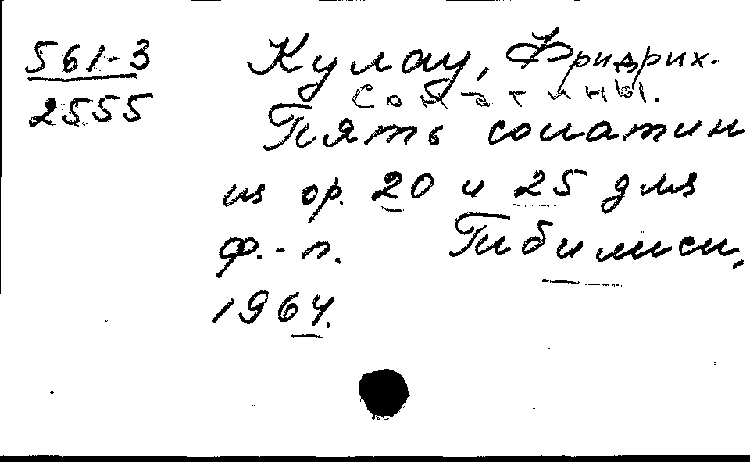 561-3
2555
Кулау, Фридрих.
Сонатины.
Пять сонатин
из ор. 20 и 25 для
ф.-п. Тбилиси,
1964.